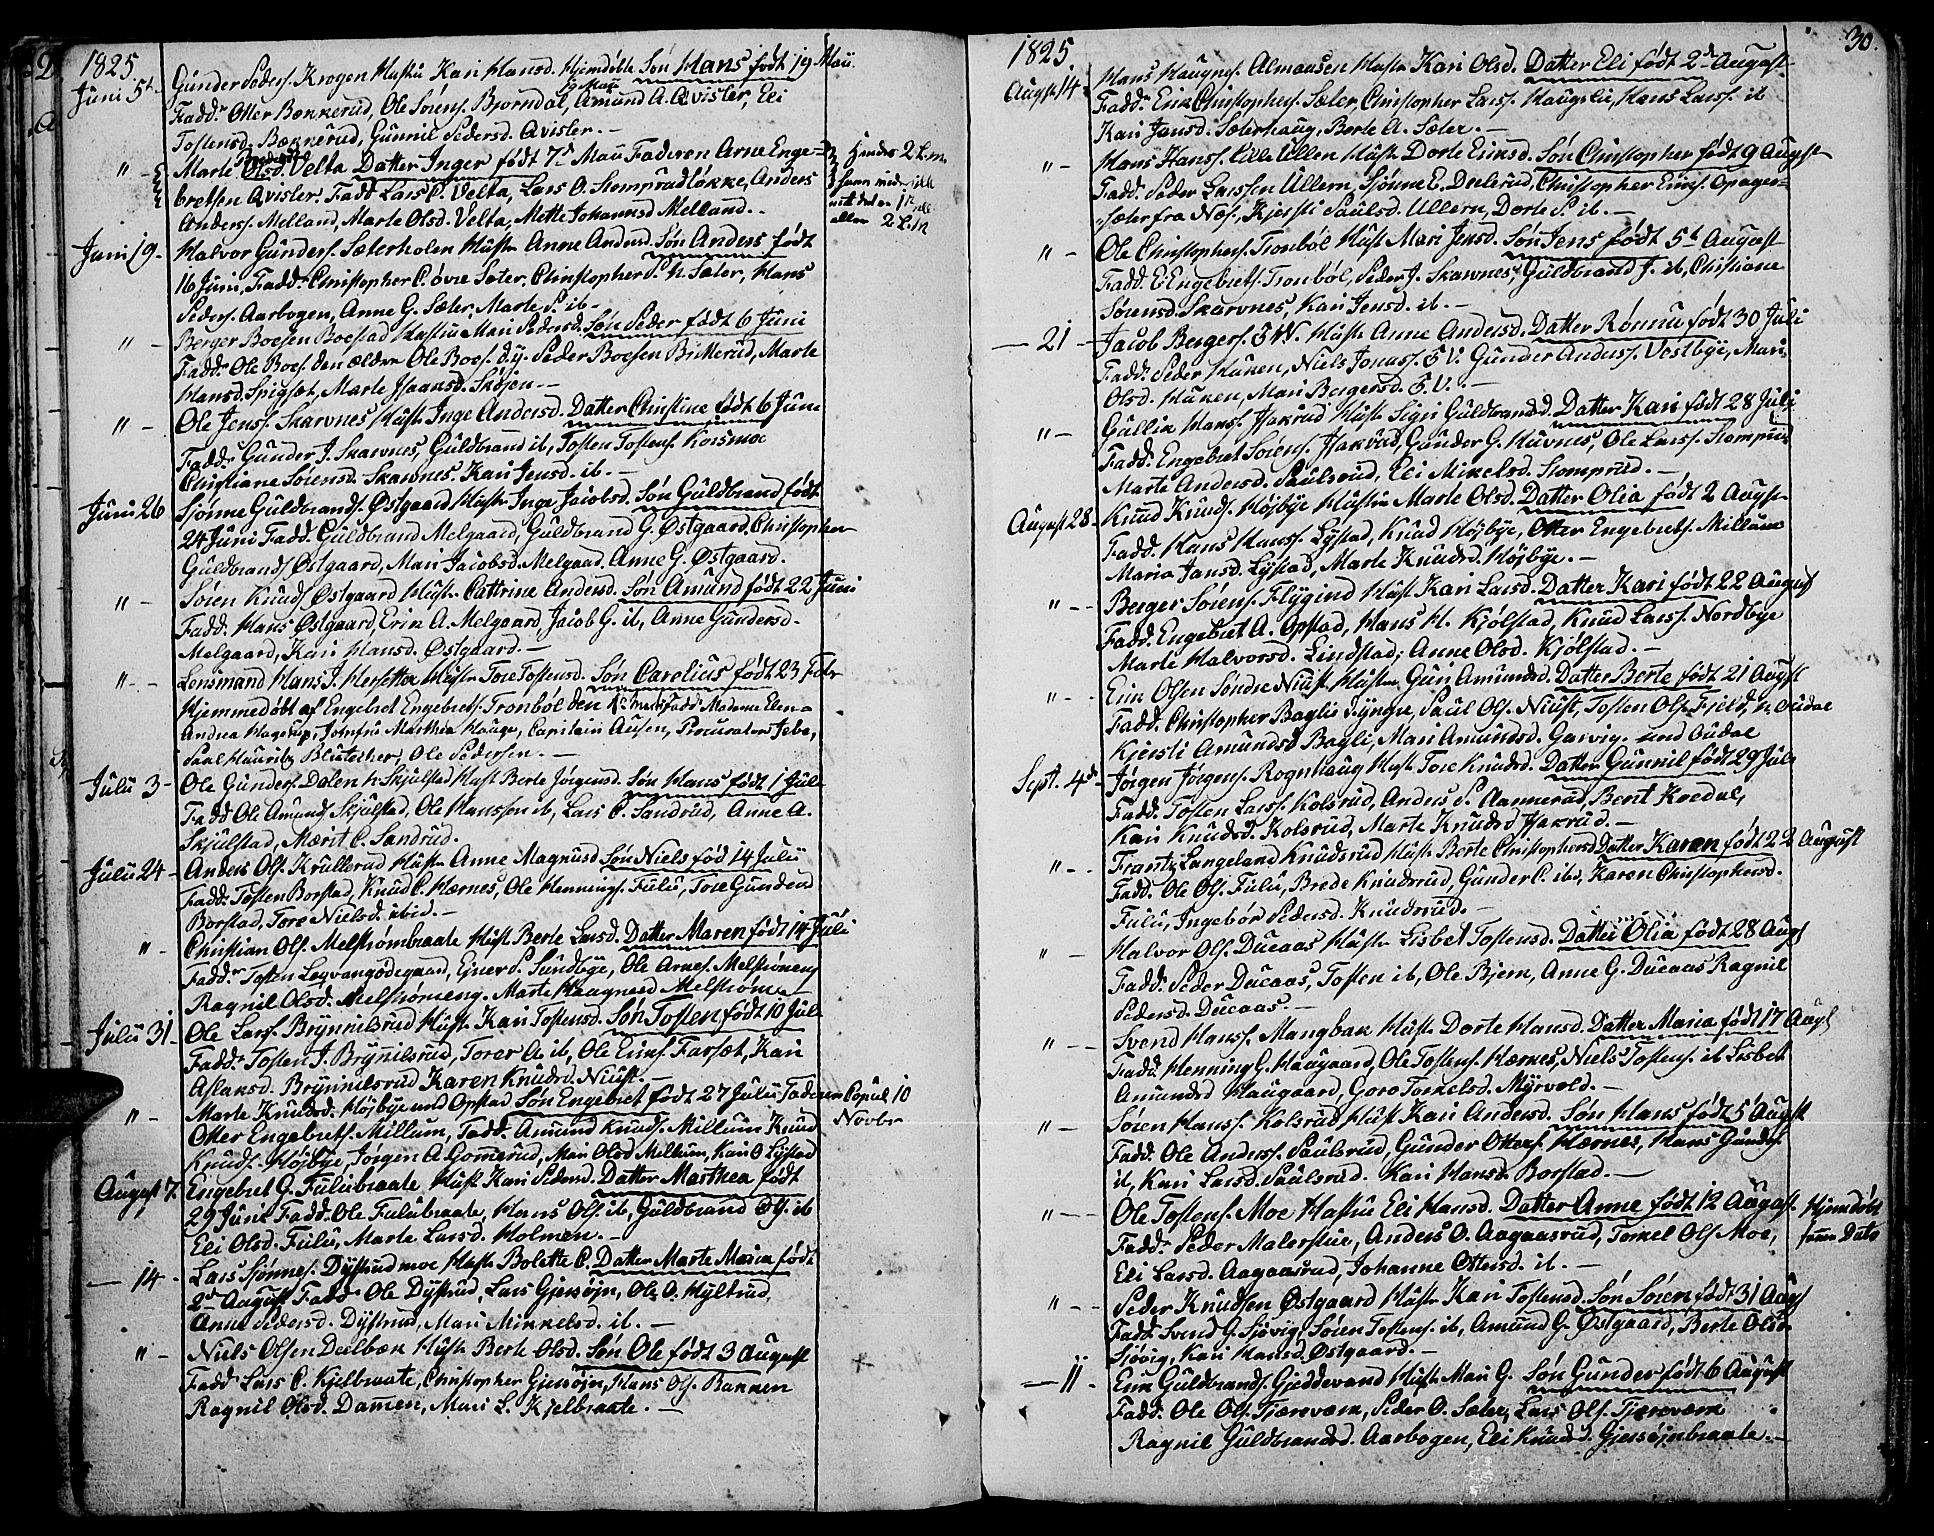 1825
Juni 5t Gunder Peders. Krogen Hustru Kari Hansd. Hjemdøbte Søn Hans født 19 Maii
Fadd. Otter Bænkerud, Ole Sørens. Bjørndal, Amund A. Qvisler, Eli
Tostensd. Bænkerud, Gunnil Pedersd. Qvisler.
" Marte Olsd. Velta Datter Inger født 7d Maii Faderen Arne Enge-
bretsen Qvisler. Fadd Lars C. Velta, Lars O. Stomprudløkke, Anders
Anders. Melland, Marte Olsd. Velta, Mette Johannsd Melland.
Juni 19 Halvor Gunders. Sæterholen Hustr Anne Andersd. Søn Anders født
16 Juni, Fadd. Christopher C. øvre Sæter, Christopher P. n. Sæter, Hans
Peders. Aarbogen, Anne G. Sæter, Marte P. ib.
" Berger Boesen Boestad Hustru Mari Pedersd. Søn Peder født 6 Juni
Fadd. Ole Boes. den ældre Ole Boes. d.y. Peder Boesen Bitterud, Marte
Hansd. Spigset, Marte Isaksd. Skøjen.
" Ole Jens. Skarvnes Hustr Inge Andersd. Datter Christine født 6 Juni
Fadd. Gunder J. Skarvnes, Guldbrand ib, Tosten Tostens. Korsmoe
Christiane Sørensd. Skarvnes. Kari Jensd. ib.
Juni 26 Sjønne Guldbrands. Østgaard Hustr. Inge Jacobsd. Søn Guldbrand født
24 Juni Fadd. Guldbrand Melgaard, Guldbrand G. Østgaard, Christopher
Guldbrands Østgaard, Mari Jacobsd. Melgaard. Anne G. Østgaard.
" Søren Knuds Østgaard Hustr. Cattrine Andersd. Søn Amund født 22 Juni
Fadd. Hans Østgaard, Erik A. Melgaard, Jacob G. ib, Anne Gundersd.
Melgaard, Kari Hansd. Østgaard.
" Lensmand Hans J. Hersetter Hustr. Tore Tostensd. Søn Carelius født 23 Febr
Hjemmedøbt af Engebret Engebrets. Tronbøl den Fadd. Madame Elen-
Andrea Hagerup, Jomfru Marthea Hauge, Capitain Ausen, Procurator Jebe,
Paul Mauritz Ole Pedersen.
Julii 3 Ole Gunders. Dalen n. Skjulstad Hustr Berte Jørgensd. Søn Hans født 1 Juli
Fadd Ole Amunds Skjulstad, Ole Hanssen ib, Lars C. Sandrud, Anne A.
Skjulstad, Marit C. Sandrud.
Julii 24 Anders Ols. Krullerud Hustr. Anne Magnusd Søn Niels fød 14 Julii
Fadd. Tosten Borstad, Knud C. Hærnes, Ole Hennings. Fulu, Tore Gundersd
Borstad, Tore Nielsd. ibid.
" Christian Ols. Melstrømbraate Hustr Berte Larsd. Datter Maren født 14 Julii
Fadd. Tosten Løvangødegaard, Ejner S. Sundbye, Ole Arnes. Melstrømeng
Ragnil Olsd. Melstrømeng. Marte Haagnesd Melstrøm
Julii 31 Ole Lars. Brynnilsrud Hustr. Kari Tostensd. Søn Tosten født 10 Juli
Fadd. Tosten J. Brynnilsrud, Torer A. ib, Ole Eriks. Farset, Kari
Aslaksd. Brynnilsrud Karen Knudsd. Niust.
" Marte Knudsd. Højbye und Opstad Søn Engebret født 27 Julii Faderen
Otter Engebrets. Millum, Fadd. Amund Knuds. Millum Knud
Knuds. Højbye, Jørgen A. Gomerud, Mari Olsd Millum, Kari O Lystad
August 7. Engebret G. Fulubraate Hustr Kari Pedersd. Datter Marthea født
29 Junii Fadd. Ole Fulubraate, Hans Ols. ib, Guldbrand Ols. ib
Eli Olsd. Fulu, Marte Larsd. Holmen.
14 Lars Sjønnes. Dystrud moe Hustr Bolette C. Datter Marte Maria født
2d August Fadd Ole Dystrud, Lars Gjersøjn, Ole O. Hyltrud,
Anne Pedersd. Dystrud, Mari Mikkelsd. ib.
" Niels Olsen Deelbæk Hustr. Berte Olsd. Søn Ole født 3 August
Fadd Lars C. Kjelbraate, Christopher Gjersøjn, Hans Ols. Bakken
Ragnil Olsd. Dammen, Mari L. Kjelbraate.
Copul 10
Novbr
1825. 30.
August 14 Hans Haagnes. Almaasen Hustr Kari Olsd. Datter Eli født 2d August
Fadd. Erik Christophers. Sæter, Christopher Larss. Haugslie, Hans Larss. ib
Kari Jansd. Sæterhaug, Berte A. Sæter.
" Hans Hanss. Lille Ullern Hustr Dorte Eriksd. Søn Christopher født 9 August
Fadd. Peder Larssen Ullern, Sjønne E. Deelerud, Christopher Eriks. Opager-
sæter fra Næs, Kjersti Paulsd. Ullern, Dorte P. ib.
" Ole Christophers. Tronbøl Hustr Mari Jensd. Søn Jens født 5t August
Fadd. E. Engebrets. Tronbøl, Peder J. Skarvnes, Guldbrand J. ib, Christiane
Sørensd. Skarvnes, Kari Jensd. ib.
21 Jacob Bergers. Hustr. Anne Andersd. Datter Rønnu født 30 Juli
Fadd. Peder Huken, Niels Jonass. Gunder Anderss. Vestbye, Mari
Olsd. Huken, Mari Bergersd.
" Gullik Hanss. Isakrud Hustr Sigri Guldbrandsd. Datter Kari født 28 Juli
Fadd. Engebret Sørens. Isakrud, Gunder G. Huvnes, Ole Larss. Stomprud
Marte Andersd. Paulsrud, Eli Mikelsd. Stomprud.
August 28 Knud Knuds. Højbye Hustr Marte Olsd. Datter Olia født 2 August
Fadd. Hans Hanss. Lystad, Knud Højbye, Otter Engebrets. Millum
Maria Jansd. Lystad, Marte Knudsd. Højbye.
" Berger Sørens. Flygind Hustr Kari Larsd. Datter Kari født 22 August
Fadd. Engebret A. Opstad, Hans H. Kjølstad, Knud Larss. Nordbye
Marte Halvorsd. Lindstad, Anne Olsd. Kjølstad.
" Erik Olsen Søndre Niust Hustr Guri Amundsd. Datter Berte født 21 August
Fadd. Christopher Bagli d. yngre, Paul Ols. Niust, Tosten Ols. Field, n. Oudal
Kjersti Amundsd Bagli, Mari Amundsd. Garvig und Oudal
Sept. 4d Jørgen Jørgens. Rognhaug Hustr. Tore Knudsd. Datter Gunnil født 29 Juli
Fadd. Tosten Larss. Kolsrud, Anders P. Aannerud, Bent Kredal,
Kari Knudsd. Kolsrud, Marte Knudsd Isakrud.
" Frantz Langeland Knudsrud Hustr. Berte Christophersd Datter Karen født 22 August
Fadd. Ole Ols. Fulu, Brede Knudsrud, Gunder C. ibd, Karen Christophersd.
Fulu, Ingebor Pedersd. Knudsrud.
" Halvor Ols. Ducaas Hustr. Lisbet Tostensd. Datter Olia født 28 Augs
Fadd. Peder Ducaas, Tosten ib, Ole Bjern, Anne G. Ducaas Ragnil
Pedersd. Ducaas.
" Svend Hanss. Mangbak Hustr. Dorte Hansd. Datter Maria født 17 Augs
Fadd. Henning G. Haugaard, Ole Tostens. Hærnes, Niels Tostens. ib Lisbet
Amundsd Haugaard, Goro Torkelsd. Myrvold.
" Søren Hanss. Kolsrud Hustr. Kari Andersd. Søn Hans født 5t August
Fadd. Ole Anderss. Paulsrud, Gunder Otters. Hærnes, Hans Gunders
ib, Kari Larsd. Paulsrud. Kari Hansd. Borstad.
" Ole Tostens. Moe Hustru Eli Hansd. Datter Anne født 12 August. Hjemdøbt
Fadd. Peder Malerstue, Anders O. Aagaasrud, Torkel Ols Moe, samme Dato
Eli Larsd. Aagaasrud, Johanne Ottersd. ib.
" Peder Knudsen Østgaard Hustr. Kari Tostensd. Søn Søren født 31 Augs
Fadd. Svend G. Sjøvig, Søren Tostens. ib, Amund G. Østgaard, Berte Olsd.
Sjøvig, Kari Hansd. Østgaard.
11 Erik Guldbrands. Gjeddevand Hustr. Mari G. Søn Gunder født 6 August
Fadd. Ole Ols. Tjæreværk, Peder O. Sæter, Lars Ols. Tjæreværk
Ragnil Guldbrandsd. Aarbogen, Eli Knudsd. Gjersøjnbraate.